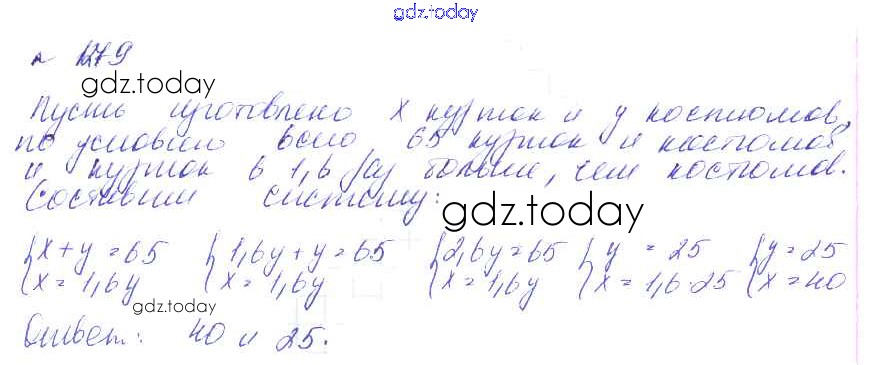 gdz.today
№ 1279
gdz.today
Пусть изготовлено x курток и y костюмов,
по условию всего 65 курток и костюмов
и курток в 1,6 раз больше, чем костюмов.
Составим систему:
gdz.today
{x+y=65 {1,6y+y=65 {2,6y=65 {y=25 {y=25
{x=1,6y {x=1,6y {x=1,6y {x=1,6·25 {x=40
gdz.today
Ответ: 40 и 25.